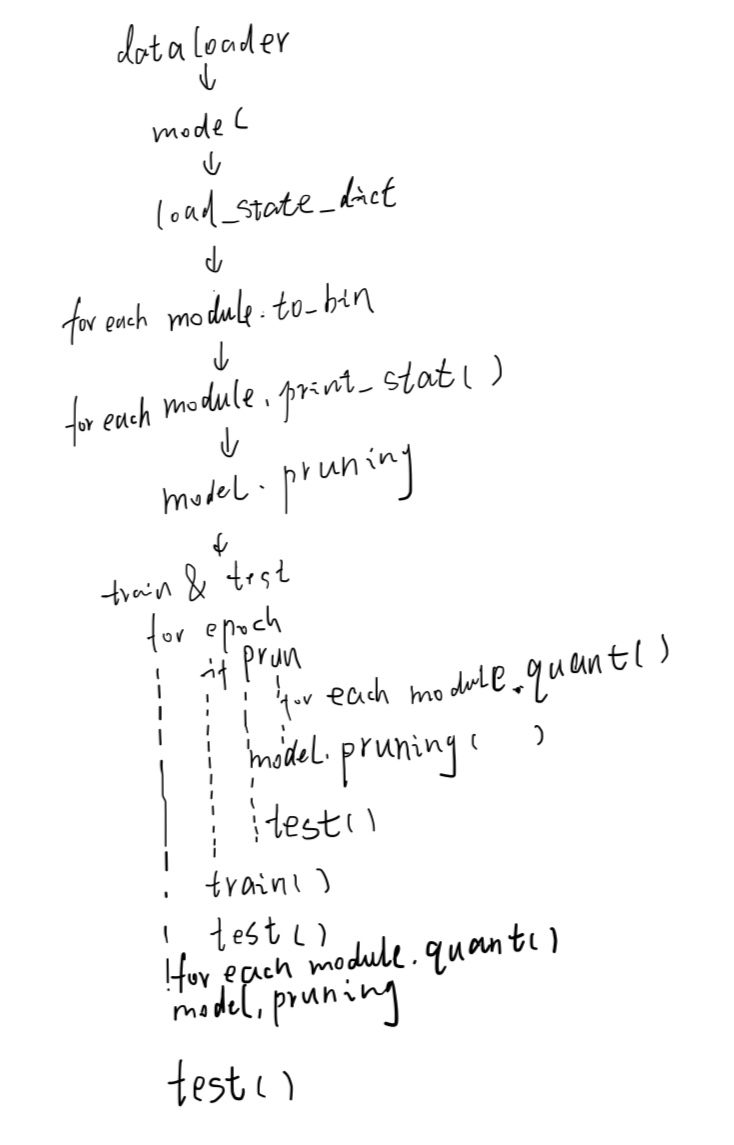 dataloader
model
load_state_dict
for each module.to_bin
for each module.print_stat()
model.pruning
train & test
for epoch
if prun
for each module.quant()
model.pruning( )
test()
train()
test()
for each module.quant()
model.pruning
test()